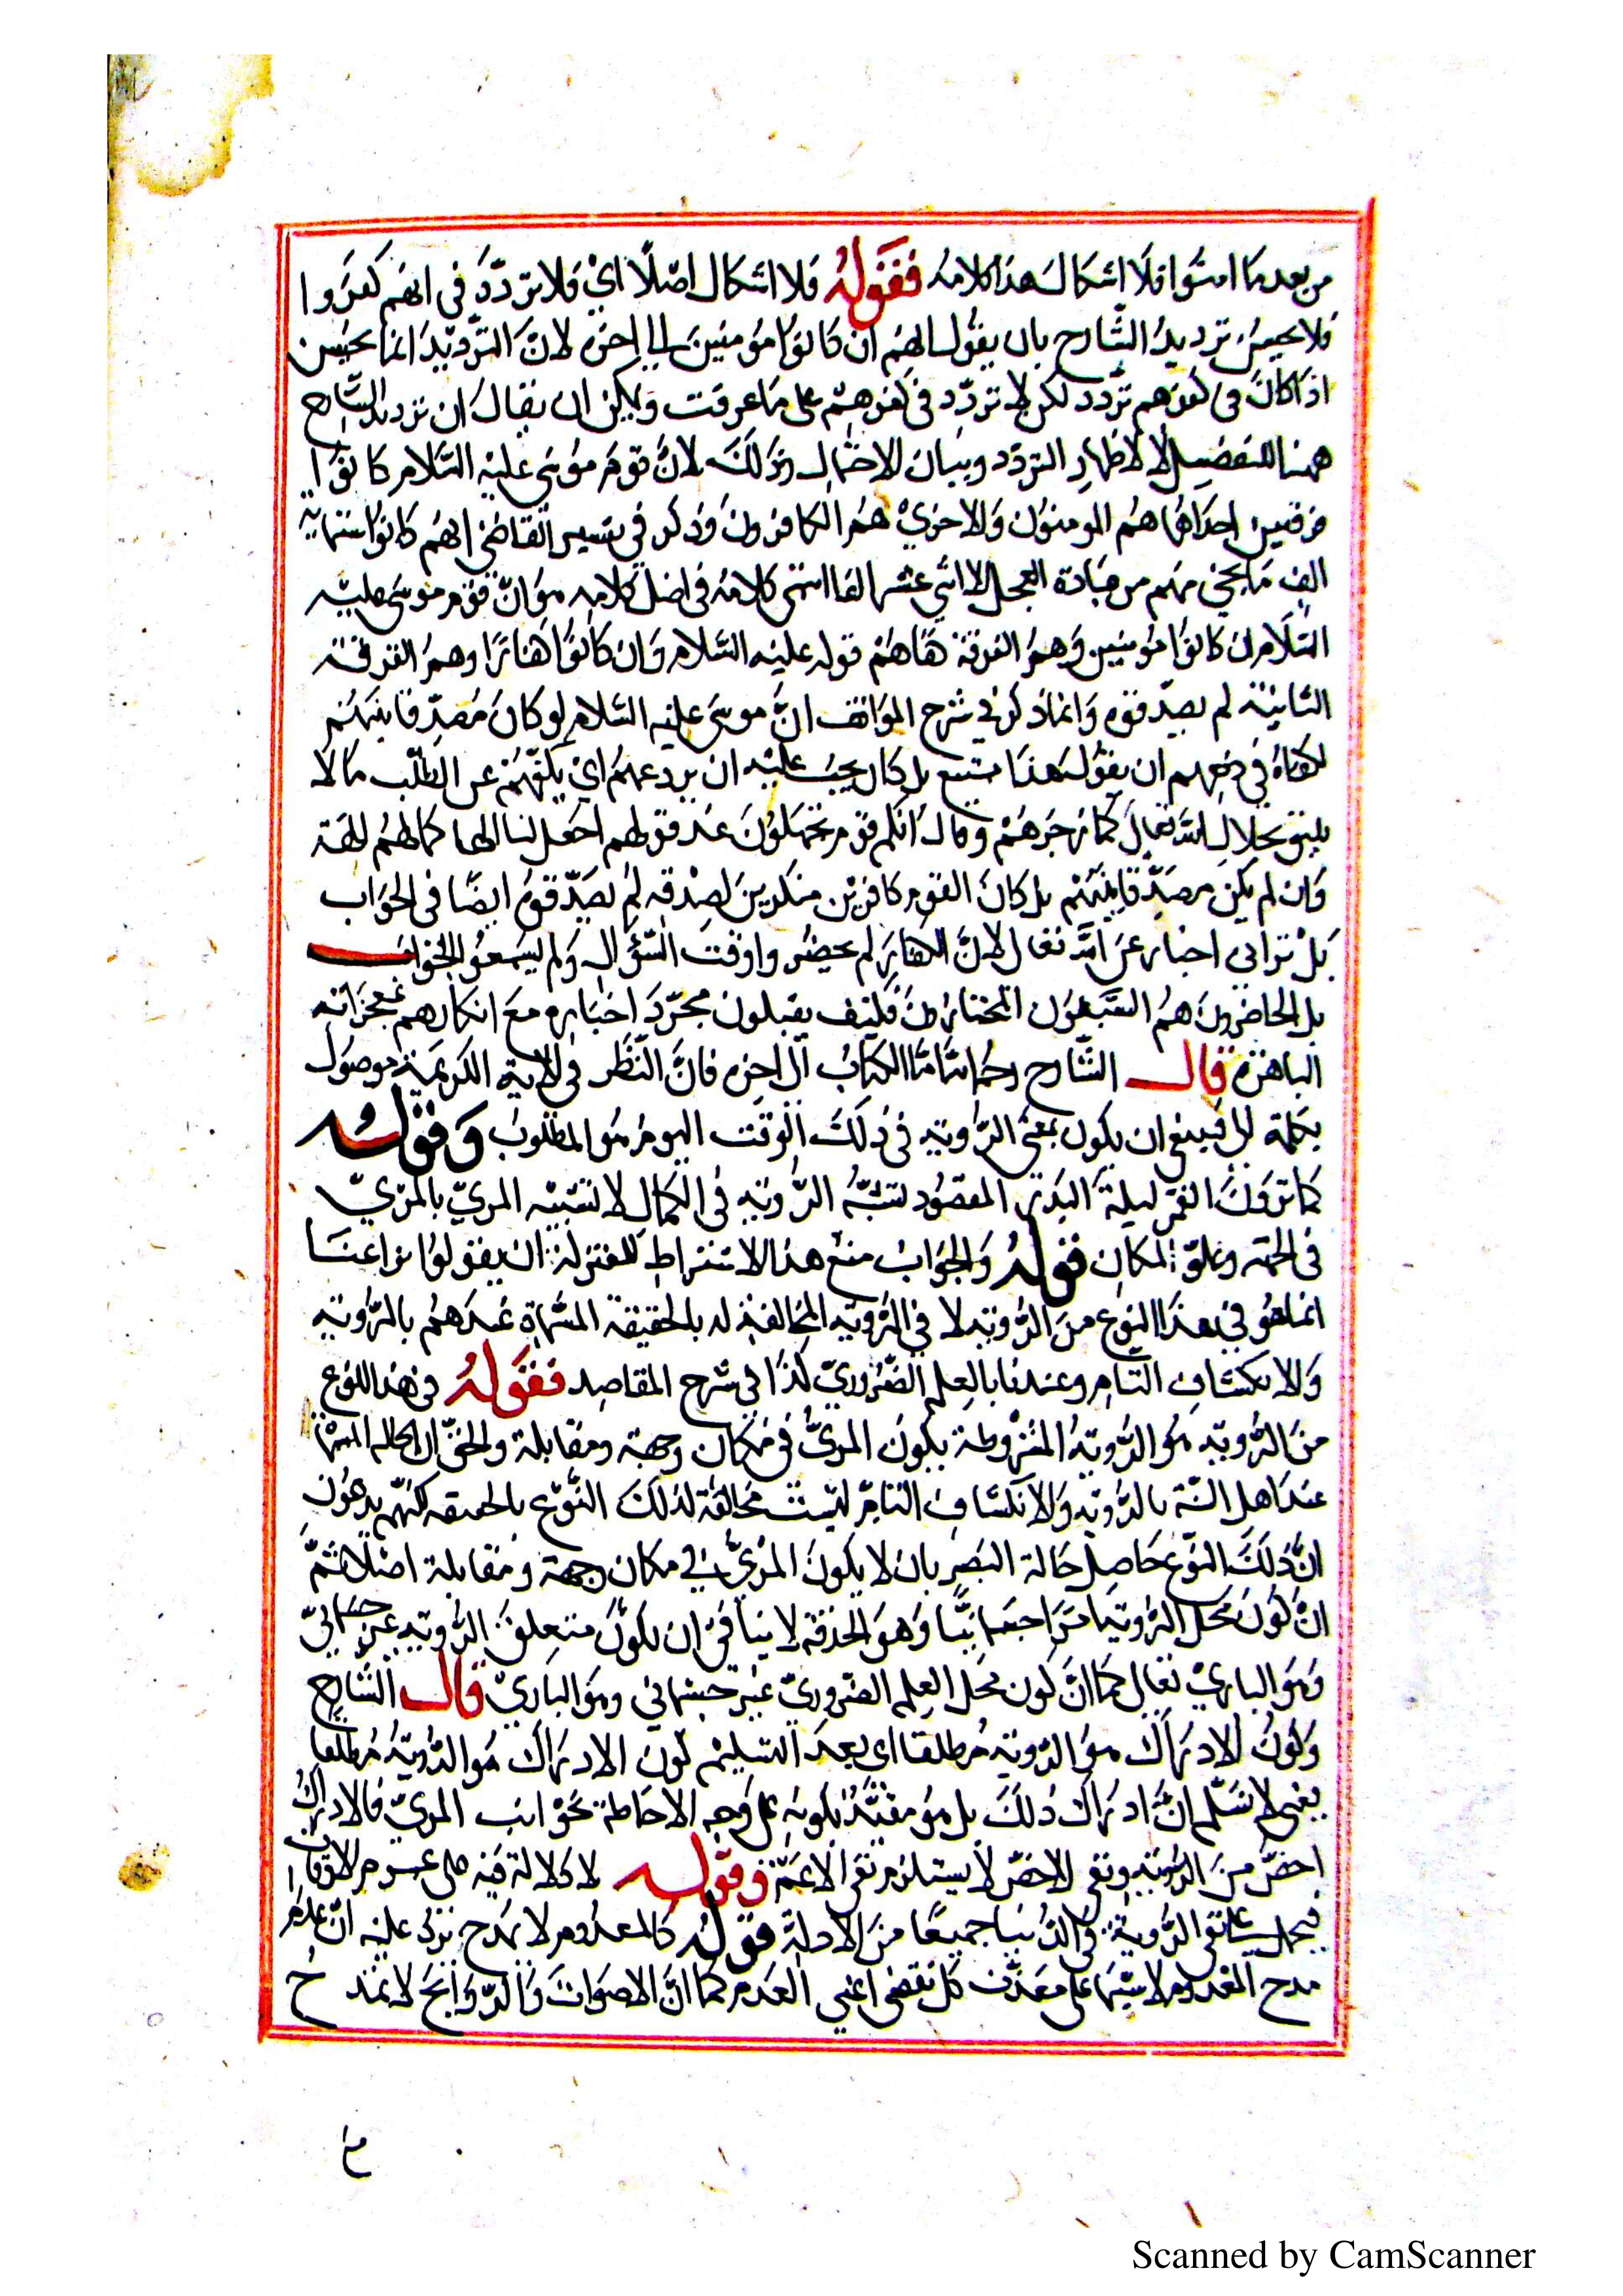 من بعد ما امنوا فلا اشكال هذا كلامه فقوله فلا اشكال اصلا اي فلا تردد في انهم كفروا
فلا يحسن ترديد الشارح بان يقول انهم ان كانوا مؤمنين الى اخره لان الترديد انما يحسن
اذا كان في كفرهم تردد لكن لا تردد في كفرهم على ما عرفت ويمكن ان يقال ان ترديد الشارح
ههنا للتفصيل لا لاظهار التردد وبيان الاحتمال وذلك لان قوم موسى عليه السلام كانوا
فرقتين احداهما هم المومنون والاخرى هم الكافرون وذكر في تفسير القاضي انهم كانوا ستماية
الف ما نجى منهم من عبادة العجل الا اثنى عشر الفا انتهى كلامه فاصل كلامه هو ان قوم موسى عليه
السلام ان كانوا مؤمنين وهم الفرقة قوله عليه السلام وان كانوا كفارا وهم الفرقة
الثانية لم يصدقوه وانما ذكر في شرح المواقف ان موسى عليه السلام لو كان مصدقا بينهم
لكفاه في دفعهم ان يقول هذا ممتنع بل كان يجب عليه ان يردعهم اي يكفهم عن الطلب ما لا
يليق بجلال الله تعالى كما زجرهم وقال انكم قوم تجهلون عند قولهم اجعل لنا الها كما لهم الهة
وان لم يكن مصدقا بينهم بل كان القوم كافرين منكرين لصدقه لم يصدقوه ايضا في الجواب
بلن تراني اخبار عن الله تعالى لان الكفار لم يحضروا وقت السؤال ولم يسمعوا الجواب
بل الحاضرون هم السبعون المختارون فكيف يقبلون مجرد اخباره مع انكارهم بمعجزاته
الباهرة قال الشارح رحمه الله اما الكتاب الى اخره فان النظر في الاية الكريمة موصول
بكلمة الى فينبغي ان يكون بمعنى الرؤية في ذلك الوقت اليوم هو المطلوب وقوله
كما ترون القمر ليلة البدر المقصود تشبيه الرؤية في الكمال لا تشبيه المرئي بالمرئي
في الجهة وعلو المكان قوله والجواب منع هذا الاشتراط للمعتزلة ان يقولوا نزاعنا
انما هو في هذا النوع من الرؤية لا في الرؤية المخالفة له بالحقيقة المسماة عندهم بالرؤية
والانكشاف التام وعندنا بالعلم الضروري كذا في شرح المقاصد فقوله في هذا النوع
من الرؤية هو الرؤية المشروطة بكون المرئي في مكان وجهة ومقابلة والحق ان الحالة المسماة
عند اهل السنة بالرؤية والانكشاف التام ليست مخالفة لذلك النوع بالحقيقة لكنهم يدعون
ان ذلك النوع حاصل حالة البصر بان لا يكون المرئي في مكان وجهة ومقابلة اصلا ثم
ان كون محل الرؤية جسمانيا وهو الحدقة لا ينافي ان يكون متعلق الرؤية غير جسماني
وهو الباري تعالى كما ان كون محل العلم الضروري غير جسماني وهو الباري قال الشارح
وكون الادراك هو الرؤية مطلقا اي بعد التسليم كون الادراك هو الرؤية مطلقا
يعني لا نسلم ان ادراك ذلك بل هو مقيد بكونه على وجه الاحاطة بجوانب المرئي فالادراك
اخص من الرؤية ونفي الاخص لا يستلزم نفي الاعم وقوله لا دلالة فيه على عموم الاوقات
فيحمل على نفي الرؤية في الدنيا جميعا من الادلة قوله كالمعدوم لا يمدح يرد عليه ان عدم
مدح المعدوم لاشتماله على معدن كل نقص اعني العدم كما ان الاصوات والروايح لا تمدح